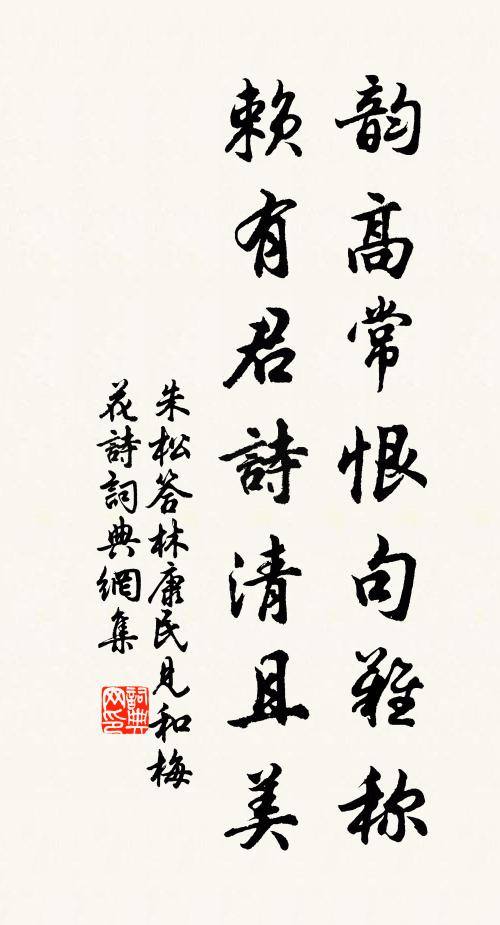 韵高常恨句難称
賴有君詩清且美
朱松答林康民見和梅
花詩詞典網集
詞典網印